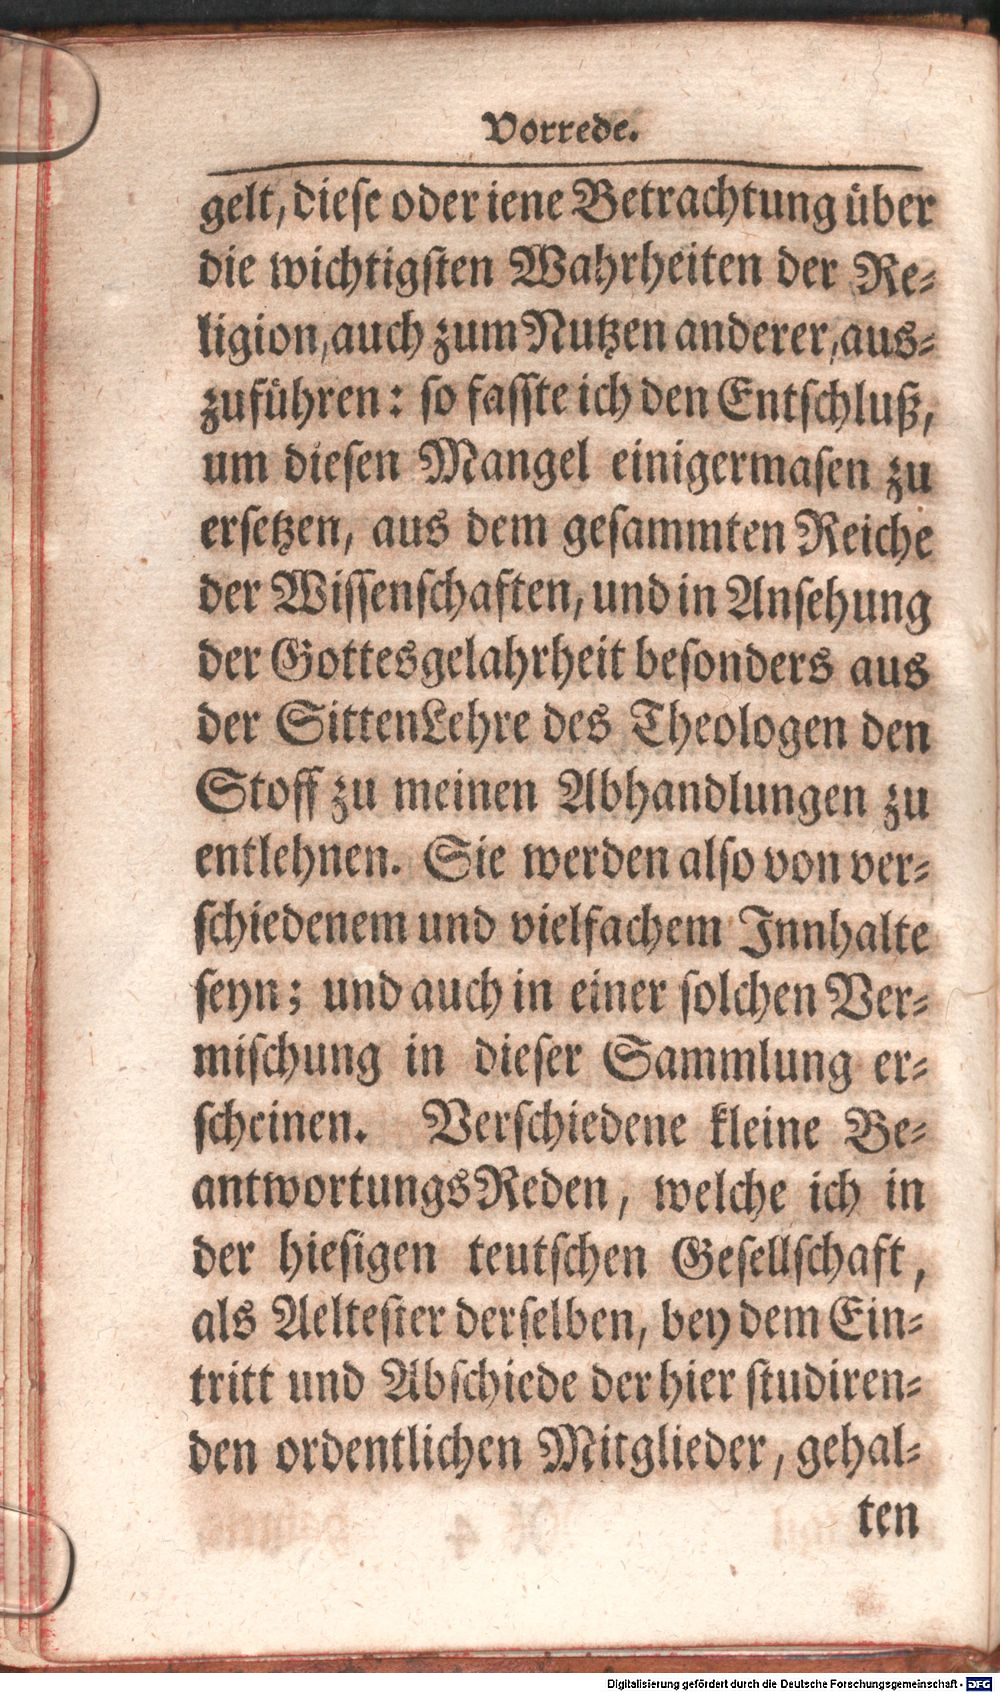 Vorrede.
gelt, dieſe oder iene Betrachtung über
die wichtigſten Wahrheiten der Re-
ligion, auch zum Nutzen anderer, aus-
zuführen: ſo faſſte ich den Entſchluß,
um dieſen Mangel einigermaſen zu
erſetzen, aus dem geſammten Reiche
der Wiſſenſchaften, und in Anſehung
der Gottesgelahrheit beſonders aus
der SittenLehre des Theologen den
Stoff zu meinen Abhandlungen zu
entlehnen. Sie werden alſo von ver-
ſchiedenem und vielfachem Innhalte
ſeyn; und auch in einer ſolchen Ver-
miſchung in dieſer Sammlung er-
ſcheinen. Verſchiedene kleine Be-
antwortungsReden, welche ich in
der hieſigen teutſchen Geſellſchaft,
als Aelteſter derſelben, bey dem Ein-
tritt und Abſchiede der hier ſtudiren-
den ordentlichen Mitglieder, gehal-
ten
Digitalisierung gefördert durch die Deutsche Forschungsgemeinschaft - DFG